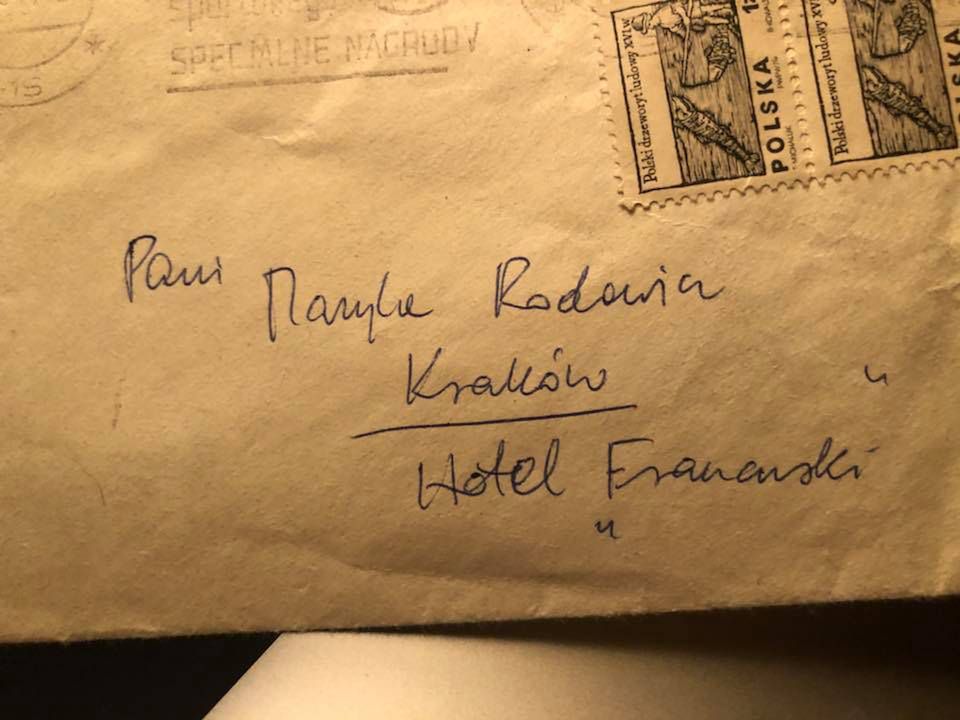 SPECJALNE NAGRODY
Polski drzeworyt ludowy XVI w
POLSKA
T. MICHALUK
Polski drzeworyt ludowy XVI w
POLSKA
Pani Maryla Rodowicz
Kraków
Hotel „Francuski"